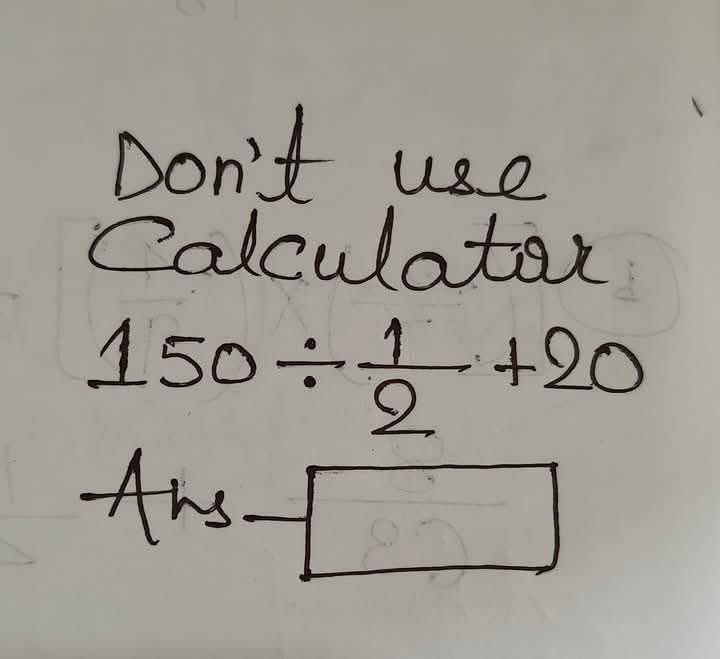 Don't use
Calculator
150 ÷ 1/2 +20
Ans -